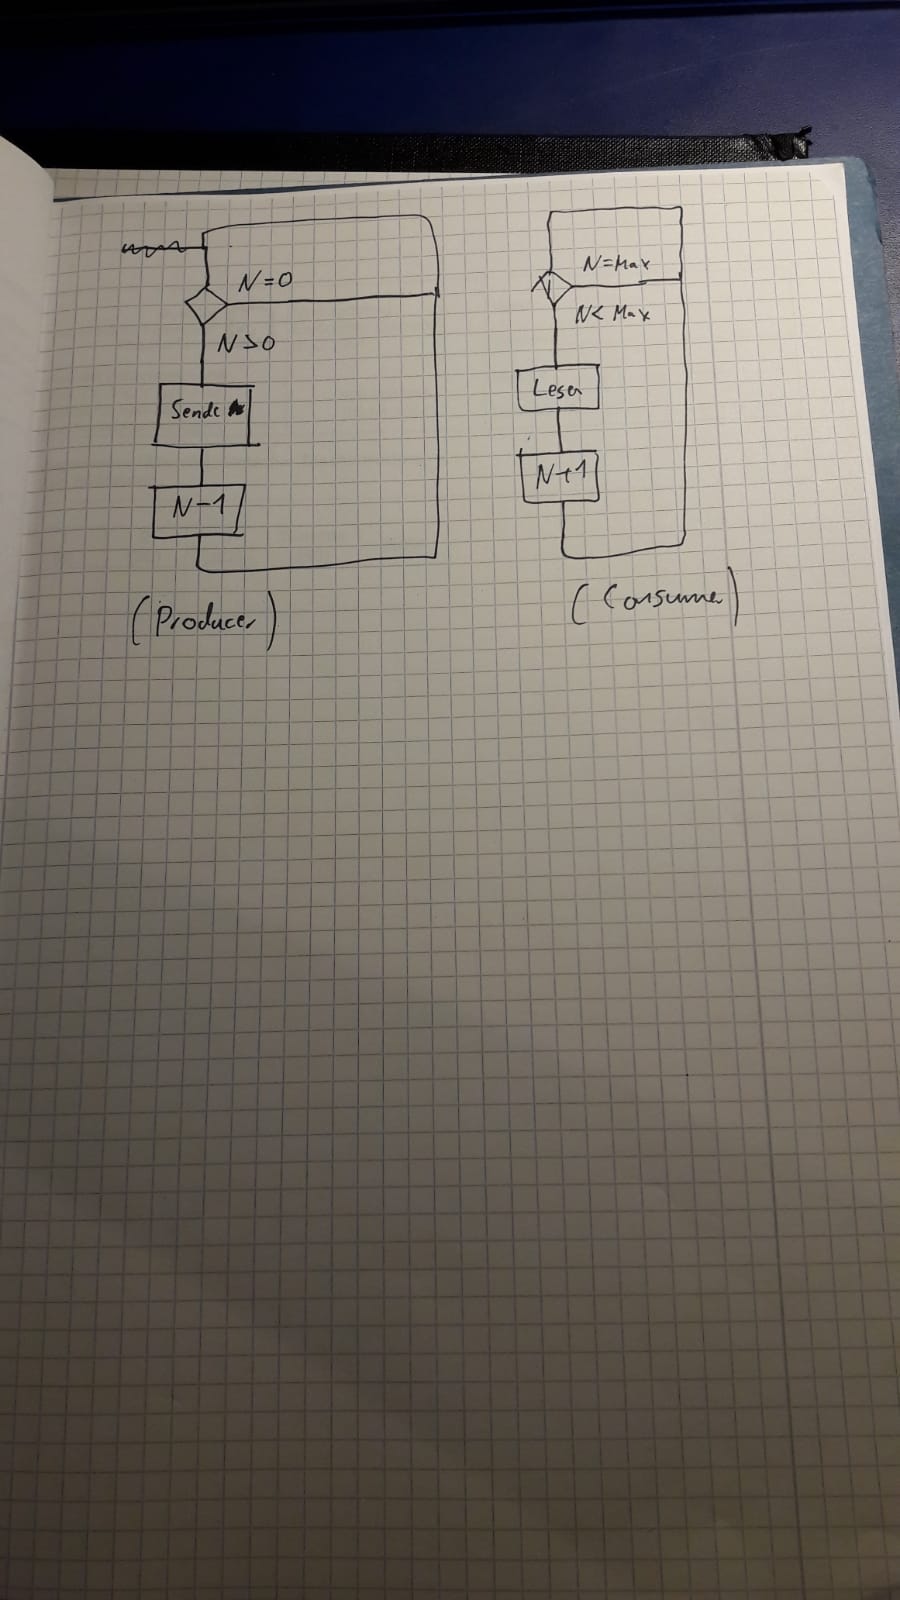 N=0
N>0
Sende
N-1
(Producer)
N=Max
N< Max
Lesen
N+1
(Consumer)